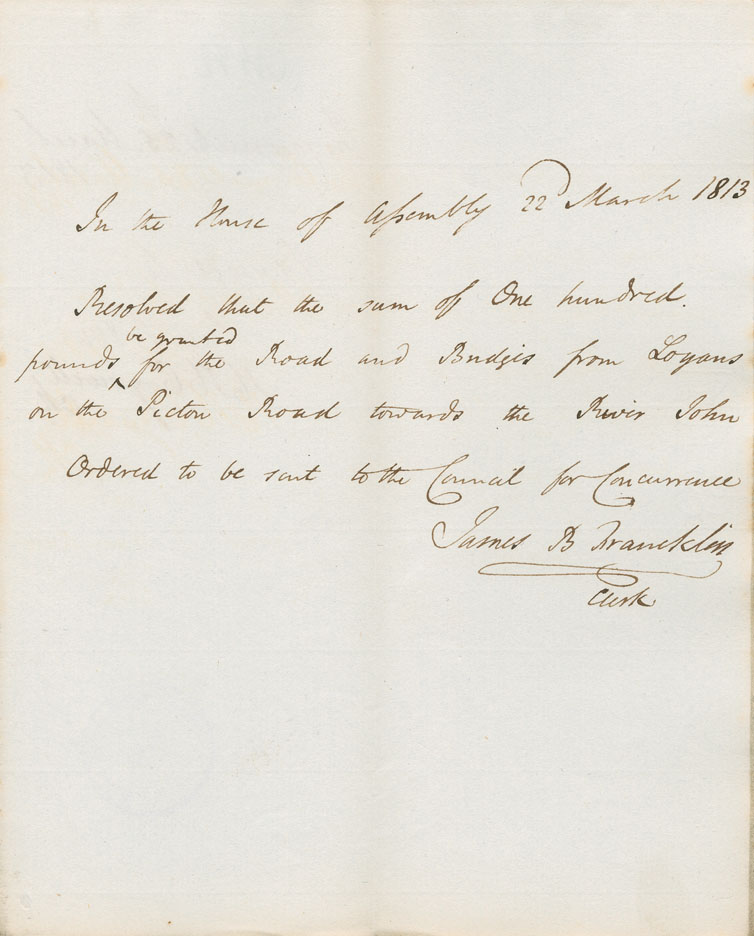 In the House of Assembly 22d March 1813
Resolved that the sum of One hundred.
be granted
pounds ^ for the Road and Bridges from Logans
on the Picton Road towards the River John
Ordered to be sent to the Council for Concurrence
James B Francklin
Clerk